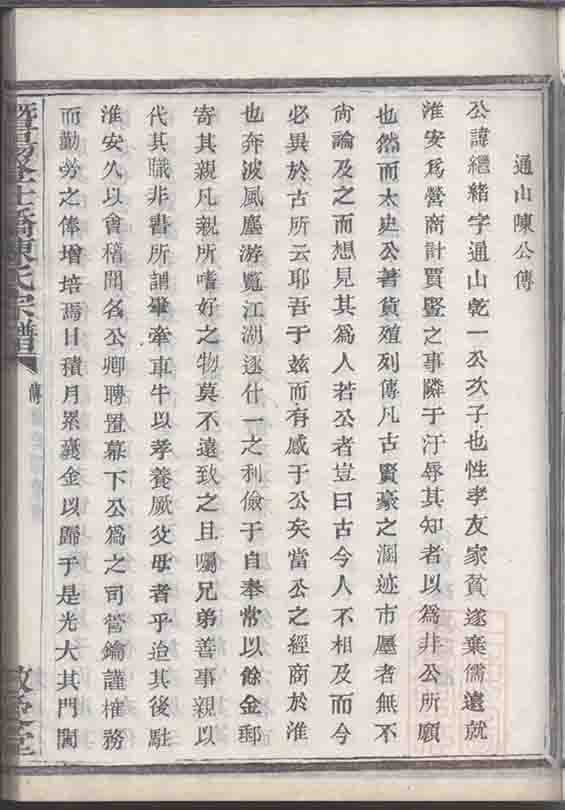 通山陳公傳
公諱繼緒字通山乾一公次子也性孝友家貧遂棄儒遠就
淮安爲營商計賈豎之事隣于汙辱其知者以爲非公所願
也然而太史公著貨殖列傳凡古賢豪之溷迹市廛者無不
尙論及之而想見其爲人若公者豈曰古今人不相及而今
必異於古所云耶吾于兹而有感于公矣當公之經商於淮
也奔波風塵游覽江湖逐什一之利儉于自奉常以餘金郵
寄其親凡親所嗜好之物莫不遠致之且囑兄弟善事親以
代其職非書所謂肇牽車牛以孝養厥父母者乎迨其後駐
淮安久以會稽聞名公卿聘置幕下公爲之司管鑰謹榷務
而勤勞之俸增培焉日積月累囊金以歸于是光大其門閭
橋陳氏宗譜
傳